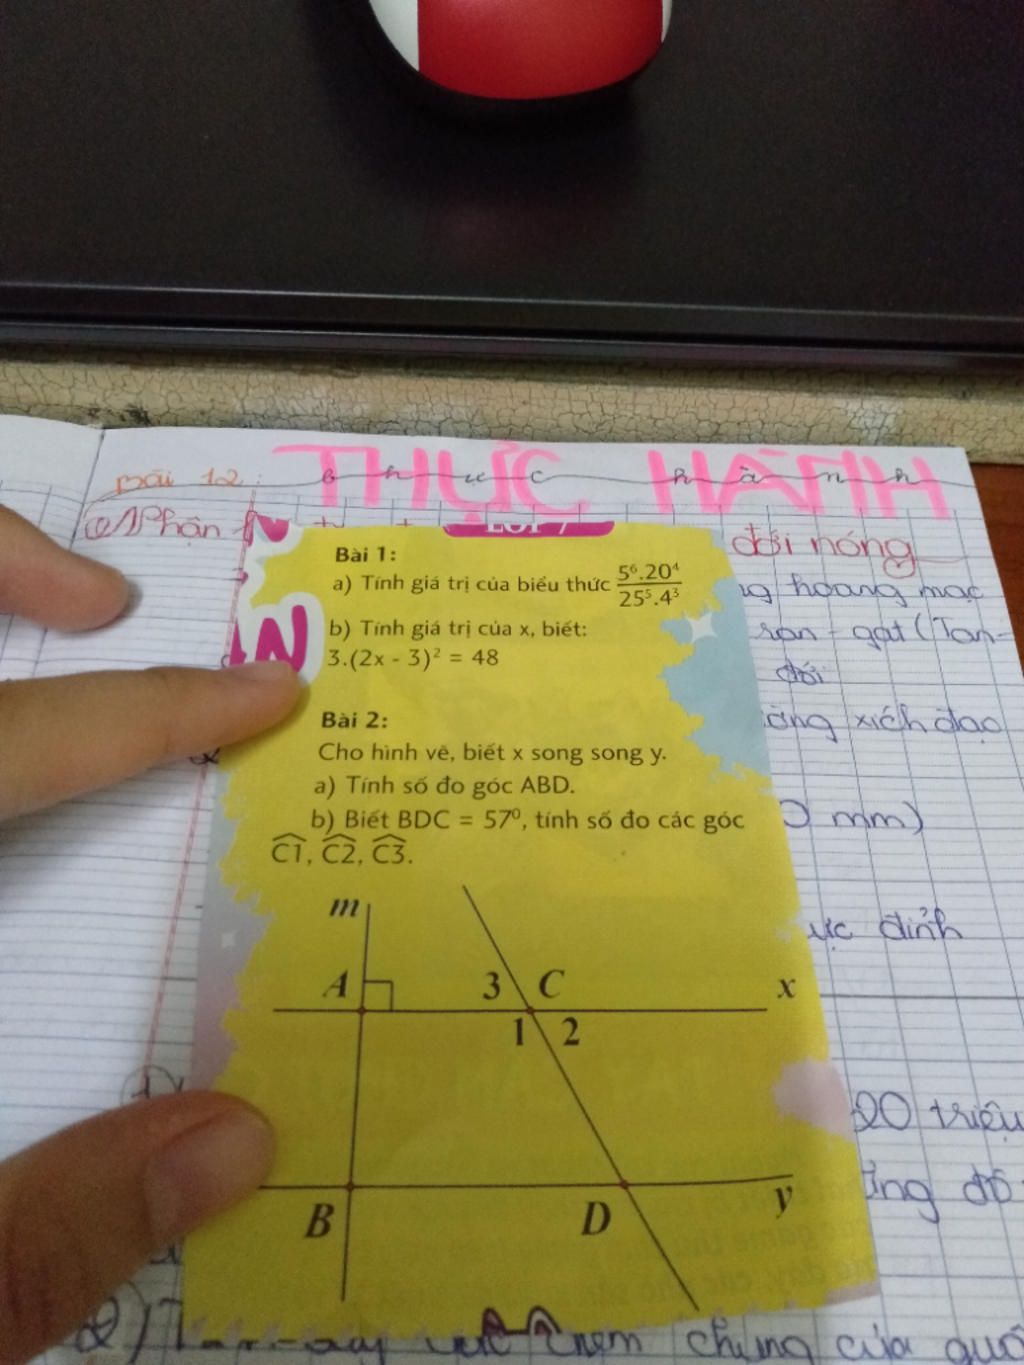 THỰC HÀNH
Bài 12: Thực hành
Phân
đới nóng
LỚP 7
Bài 1:
a) Tính giá trị của biểu thức 5⁶.20⁴/25⁵.4³
b) Tính giá trị của x, biết:
3.(2x - 3)² = 48
Bài 2:
Cho hình vẽ, biết x song song y.
a) Tính số đo góc ABD.
b) Biết BDC = 57⁰, tính số đo các góc
C1, C2, C3.
m
A 3 C x
1 2
B D y
hoang mạc
gat (Tan-
đới
xích đạo
mm)
cực đỉnh
20 triệu
độ
chung của